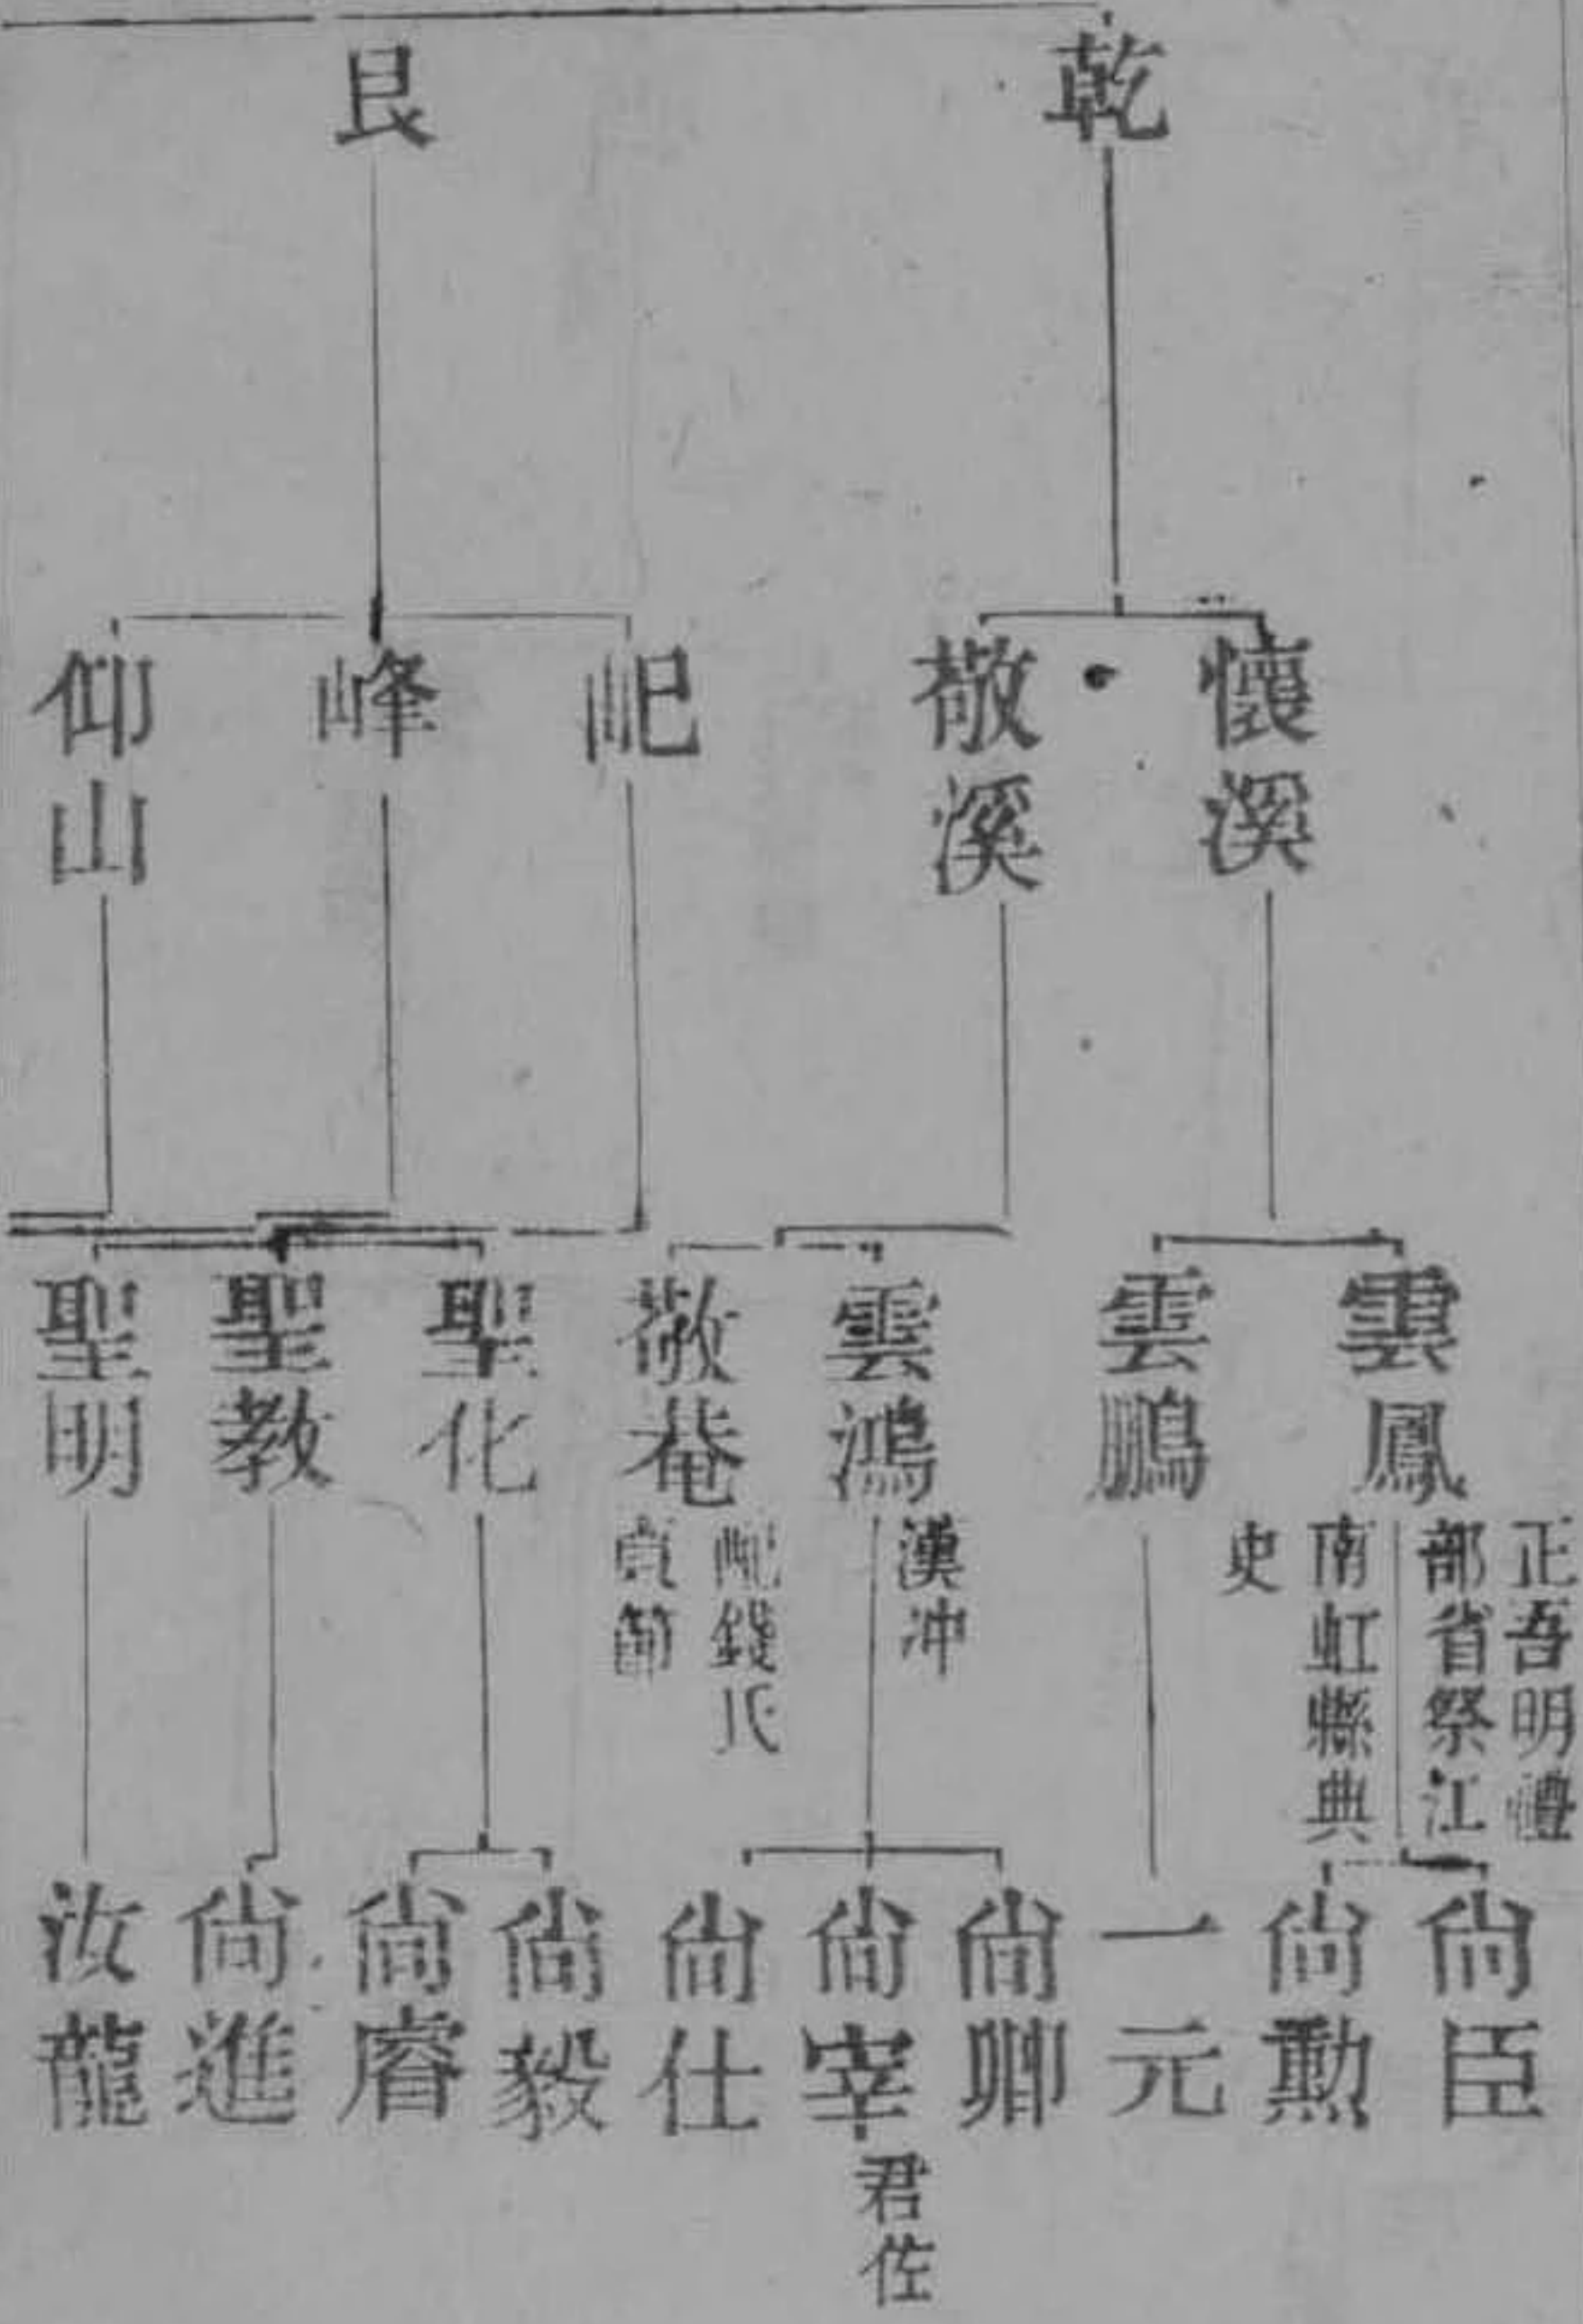 乾
艮
懷溪
敬溪
屺
峰
仰山
雲鳳
正吾明禮
部省祭江
南虹縣典
史
雲鵬
雲鴻
漢冲
敬菴
配錢氏
貞節
聖化
聖教
聖明
尙臣
尙勳
一元
尙卿
尙宰
君佐
尙仕
尙毅
尙睿
尙進
汝龍